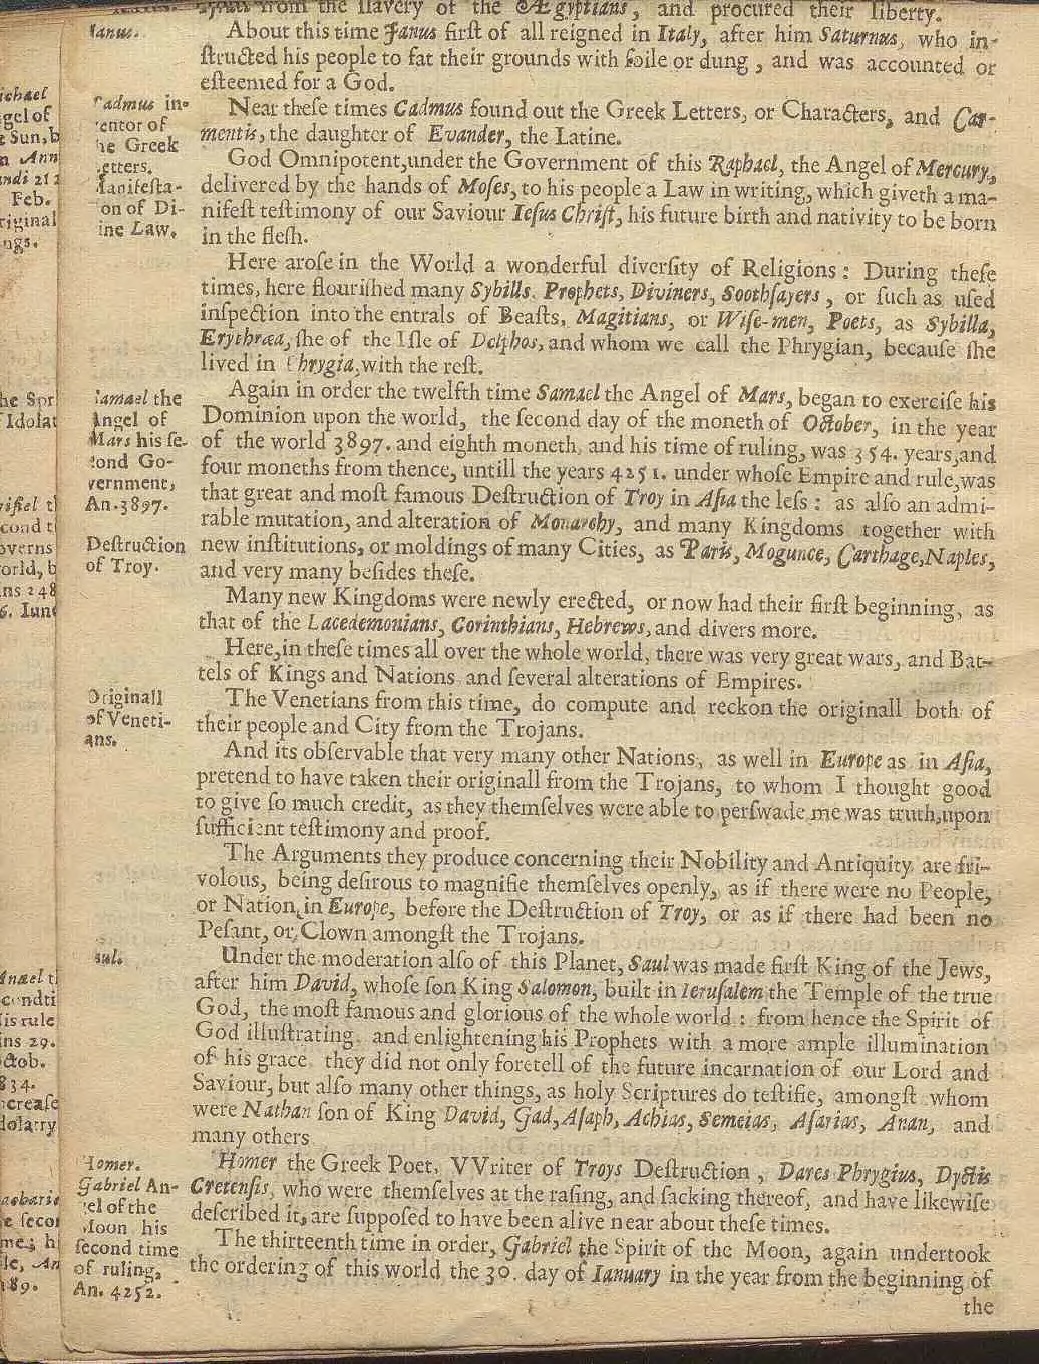 from the ſlavery of the Ægyptians, and procured their liberty.
Ianus.
About this time Janus firſt of all reigned in Italy, after him Saturnus, who in-
ſtructed his people to fat their grounds with ſoile or dung, and was accounted or
eſteemed for a God.
Cadmus in-
ventor of
the Greek
Letters.
Near theſe times Cadmus found out the Greek Letters, or Characters, and Car-
mentis, the daughter of Evander, the Latine.
Manifeſta-
tion of Di-
vine Law.
God Omnipotent,under the Government of this Raphael, the Angel of Mercury,
delivered by the hands of Moſes, to his people a Law in writing, which giveth a ma-
nifeſt teſtimony of our Saviour Ieſus Chriſt, his future birth and nativity to be born
in the fleſh.
Here aroſe in the World a wonderful diverſity of Religions: During theſe
times, here flouriſhed many Sybills, Prophets, Diviners, Soothſayers, or ſuch as uſed
inſpection into the entrals of Beaſts, Magitians, or Wiſe-men, Poets, as Sybilla,
Erythræa, ſhe of the Iſle of Delphos, and whom we call the Phrygian, becauſe ſhe
lived in Phrygia, with the reſt.
Samael the
Angel of
Mars his ſe-
cond Go-
vernment,
An.3897.
Again in order the twelfth time Samael the Angel of Mars, began to exerciſe his
Dominion upon the world, the ſecond day of the moneth of October, in the year
of the world 3897. and eighth moneth, and his time of ruling, was 354. years,and
four moneths from thence, untill the years 4251. under whoſe Empire and rule,was
that great and moſt famous Deſtruction of Troy in Aſia the leſs: as alſo an admi-
rable mutation, and alteration of Monarchy, and many Kingdoms together with
Deſtruction
of Troy.
new inſtitutions, or moldings of many Cities, as Paris, Mogunce, Carthage,Naples,
and very many beſides theſe.
Many new Kingdoms were newly erected, or now had their firſt beginning, as
that of the Lacedemonians, Corinthians, Hebrews, and divers more.
Here,in theſe times all over the whole world, there was very great wars, and Bat-
tels of Kings and Nations and ſeveral alterations of Empires.
Originall
of Veneti-
ans.
The Venetians from this time, do compute and reckon the originall both of
their people and City from the Trojans.
And its obſervable that very many other Nations, as well in Europe as in Aſia,
pretend to have taken their originall from the Trojans, to whom I thought good
to give ſo much credit, as they themſelves were able to perſwade me was truth,upon
ſufficient teſtimony and proof.
The Arguments they produce concerning their Nobility and Antiquity are fri-
volous, being deſirous to magnifie themſelves openly, as if there were no People,
or Nation in Europe, before the Deſtruction of Troy, or as if there had been no
Peſant, or Clown amongſt the Trojans.
Under the moderation alſo of this Planet, Saul was made firſt King of the Jews,
after him David, whoſe ſon King Salomon, built in Ieruſalem the Temple of the true
God, the moſt famous and glorious of the whole world: from hence the Spirit of
God illuſtrating, and enlightening his Prophets with a more ample illumination
of his grace, they did not only foretell of the future incarnation of our Lord and
Saviour, but alſo many other things, as holy Scriptures do teſtifie, amongſt whom
were Nathan ſon of King David, Gad, Aſaph, Achias, Semeias, Aſarias, Anan, and
many others
Homer.
Homer the Greek Poet, VVriter of Troys Deſtruction, Dares Phrygius, Dyctis
Cretenſis, who were themſelves at the raſing, and ſacking thereof, and have likewiſe
deſcribed it, are ſuppoſed to have been alive near about theſe times.
Gabriel An-
gel of the
Moon his
ſecond time
of ruling,
An. 4252.
The thirteenth time in order, Gabriel the Spirit of the Moon, again undertook
the ordering of this world the 30. day of Ianuary in the year from the beginning of
the